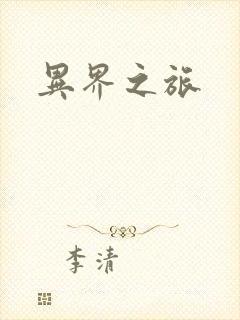 異界之旅
李清